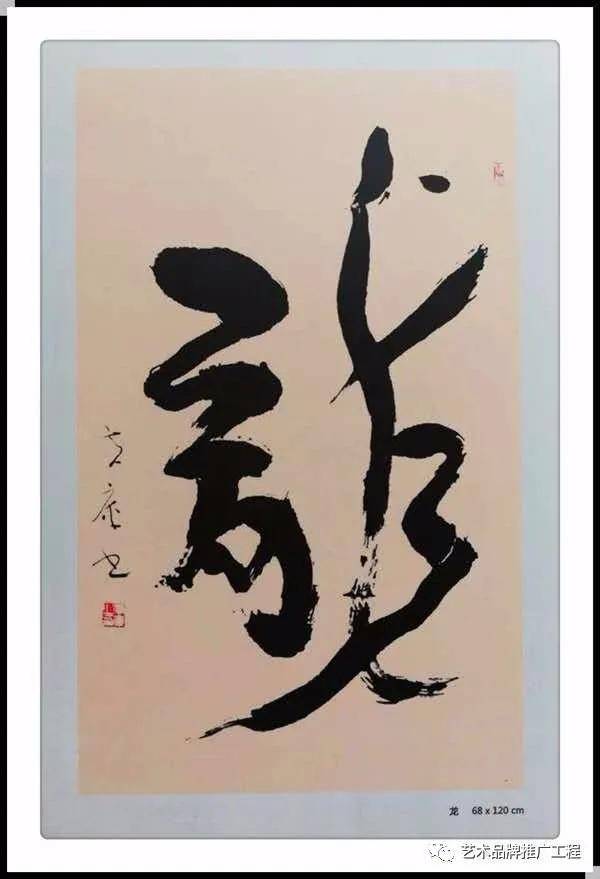 龍
书
龙 68 x 120 cm
艺术品牌推广工程